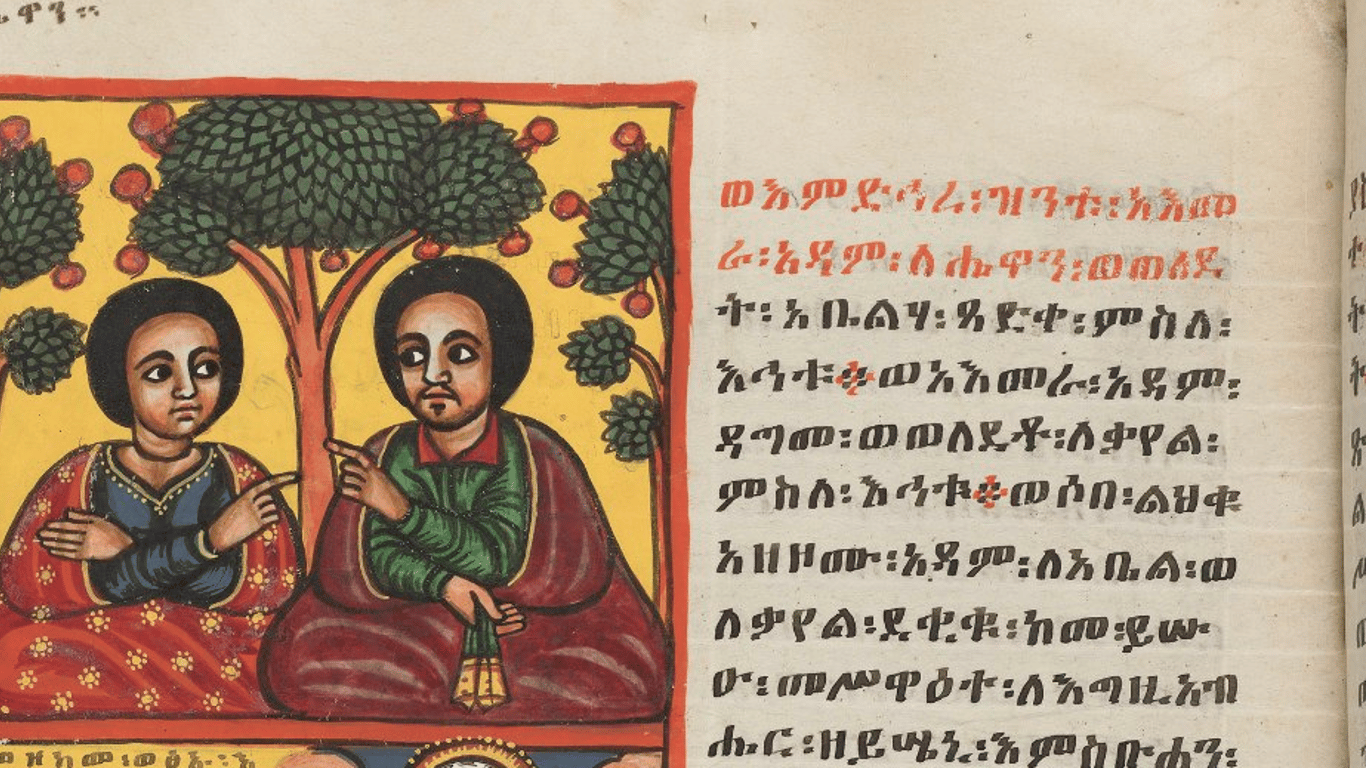 ዋን።
ወእምድኅረ፡ዝንቱ፡አእመ
ራ፡አዳም፡ለሔዋን፡ወወለደ
ት፡አቤልሃ፡ጻድቀ፡ምስለ፡
እኅቱ፨ወአእመራ፡አዳም፡
ዳግመ፡ወወለደቶ፡ለቃየል፡
ምስለ፡እኅቱ፨ወሶበ፡ልህቁ
አዘዞሙ፡አዳም፡ለአቤል፡ወ
ለቃየል፡ደቂቁ፡ከመ፡ይሡ
ዑ፡መሥዋዕተ፡ለእግዚአብ
ሔር፡ዘይሤኒ፡እምስቡሐን፡